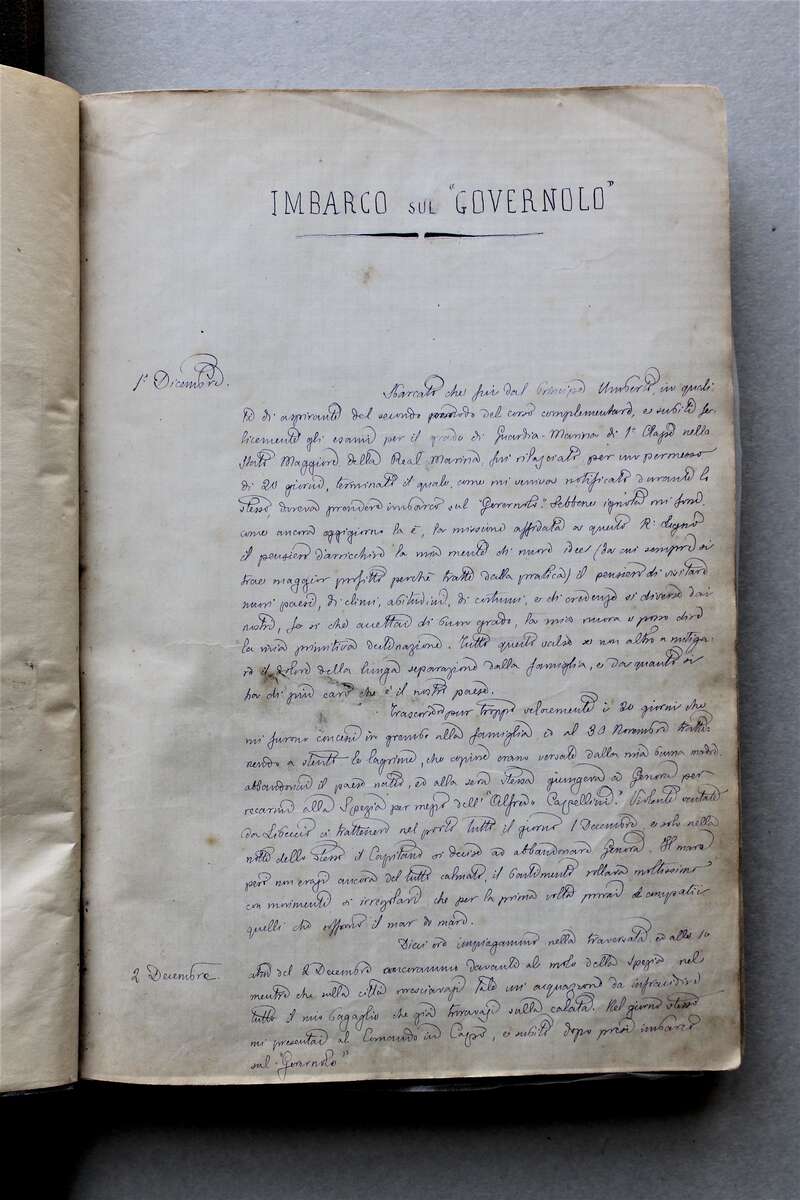 IMBARCO SUL "GOVERNOLO"
1° Dicembre.
Sbarcato che fui dal Principe Umberto, in quali-
tà di aspirante del secondo periodo del corso complementare, e subiti fe-
licemente gli esami per il grado di Guardia-Marina di 1ª Classe nello
Stato Maggiore della Real Marina, fui rilasciato per un permesso
di 20 giorni, terminato il quale, come mi veniva notificato durante lo
stesso, doveva prendere imbarco sul "Governolo". Sebbene ignota mi fosse,
come ancora oggigiorno la è, la missione affidata a questo R: Legno
il pensiero d'arricchire la mia mente di nuove idee (da cui sempre si
trae maggior profitto perché tratte dalla pratica) il pensiero di visitare
nuovi paesi, di climi, abitudini, di costumi, e di credenze sì diverse dai
nostri, fe sì che accettai di buon grado, la mia nuova e posso dire
la mia primitiva destinazione. Tutto questo valse se non altro a mitiga-
re il dolore della lunga separazione dalla famiglia, e da quanto si
ha di più caro che è il nostro paese.
Trascorsi pur troppo velocemente i 20 giorni che
mi furono concessi in grembo alla famiglia ed al 30 Novembre tratte-
nendo a stento le lagrime, che copiose erano versate dalla mia buona madre
abbandonai il paese natio, ed alla sera stessa giungeva a Genova per
recarmi alla Spezia per mezzo dell' "Alfredo Cappellini". Violente ventate
da Libeccio ci trattennero nel porto tutto il giorno 1 Decembre, e solo nella
notte dello stesso il Capitano si decise ad abbandonare Genova. Il mare
però non erasi ancora del tutto calmato, il bastimento rollava moltissimo
con movimenti sì irregolari che per la prima volta provai a compatir
quelli che soffrono il mar di mare.
Dieci ore impiegammo nella traversata ed alle 10
2 Decembre
ant. del 2 Decembre ancorammo davanti al molo della Spezia nel
mentre che sulla città rovesciavasi tale un'acquazzone da infracidire
tutto il mio bagaglio che già trovavasi sulla calata. Nel giorno stesso
mi presentai al Comando in Capo, e subito dopo presi imbarco
sul "Governolo"